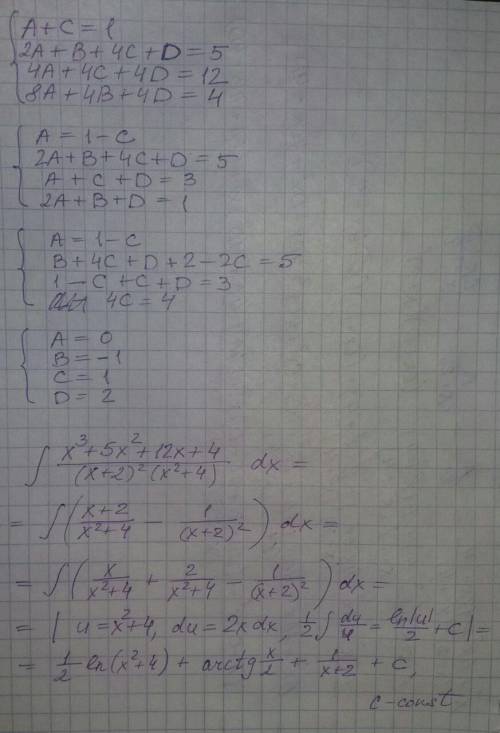 A + C = 1
2A + B + 4C + D = 5
4A + 4C + 4D = 12
8A + 4B + 4D = 4
A = 1 - C
2A + B + 4C + D = 5
A + C + D = 3
2A + B + D = 1
A = 1 - C
B + 4C + D + 2 - 2C = 5
1 - C + C + D = 3
4C = 4
A = 0
B = -1
C = 1
D = 2
∫ (x³ + 5x² + 12x + 4)/((x+2)² (x²+4)) dx =
= ∫ ( (x+2)/(x²+4) - 1/(x+2)² ) dx =
= ∫ ( x/(x²+4) + 2/(x²+4) - 1/(x+2)² ) dx =
= | u = x²+4, du = 2x dx, 1/2 ∫ du/u = ln|u|/2 + C | =
= 1/2 ln(x²+4) + arctg x/2 + 1/(x+2) + C,
C - const